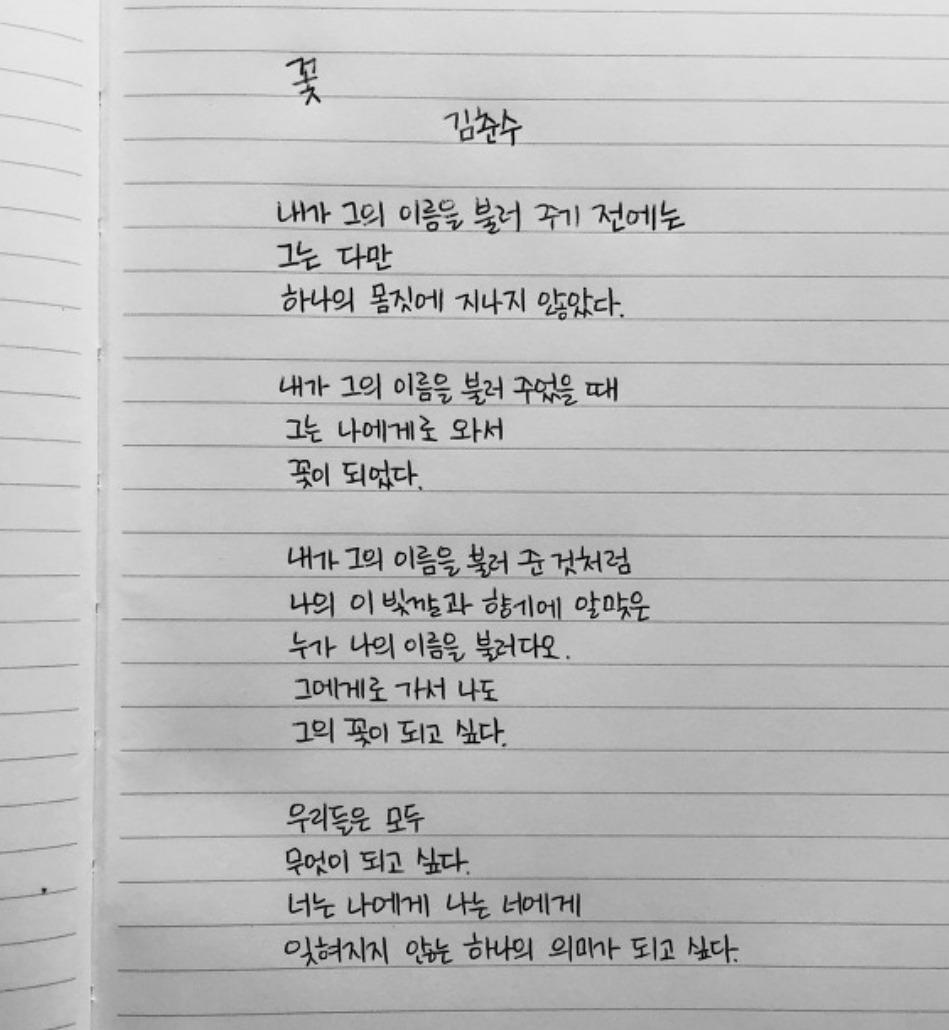 꽃
김춘수
내가 그의 이름을 불러 주기 전에는
그는 다만
하나의 몸짓에 지나지 않았다.
내가 그의 이름을 불러 주었을 때
그는 나에게로 와서
꽃이 되었다.
내가 그의 이름을 불러 준 것처럼
나의 이 빛깔과 향기에 알맞은
누가 나의 이름을 불러다오.
그에게로 가서 나도
그의 꽃이 되고 싶다.
우리들은 모두
무엇이 되고 싶다.
너는 나에게 나는 너에게
잊혀지지 않는 하나의 의미가 되고 싶다.